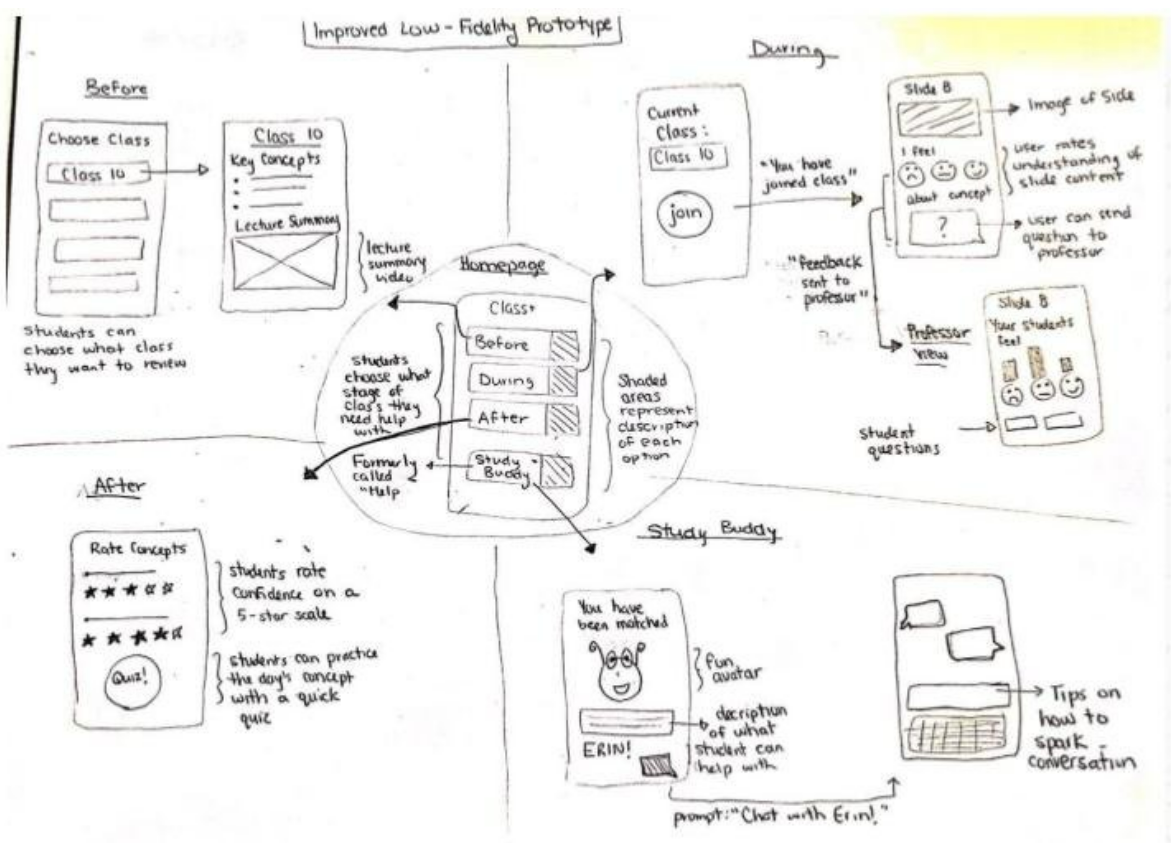 Improved Low-Fidelity Prototype
Before
Choose Class
Class 10
Students can
choose what class
they want to review
Class 10
Key Concepts
Lecture Summary
lecture
summary
video
During
Current
Class:
Class 10
join
"You have
joined class"
Slide 8
I feel
about concept
?
Image of Slide
user rates
understanding of
slide content
user can send
question to
professor
"feedback
sent to
professor"
Professor
View
Slide 8
Your students
feel
Student
questions
Homepage
Class+
Before
During
After
Study
Buddy
Students
choose what
stage of
class they
need help
with
Formerly
called
"Help
Shaded
areas
represent
description
of each
option
After
Rate Concepts
Quiz!
students rate
confidence on a
5-star scale
students can practice
the day's concept
with a quick
quiz
Study Buddy
You have
been matched
ERIN!
fun
avatar
decription
of what
student can
help with
prompt: "Chat with Erin!"
Tips on
how to
spark
conversation